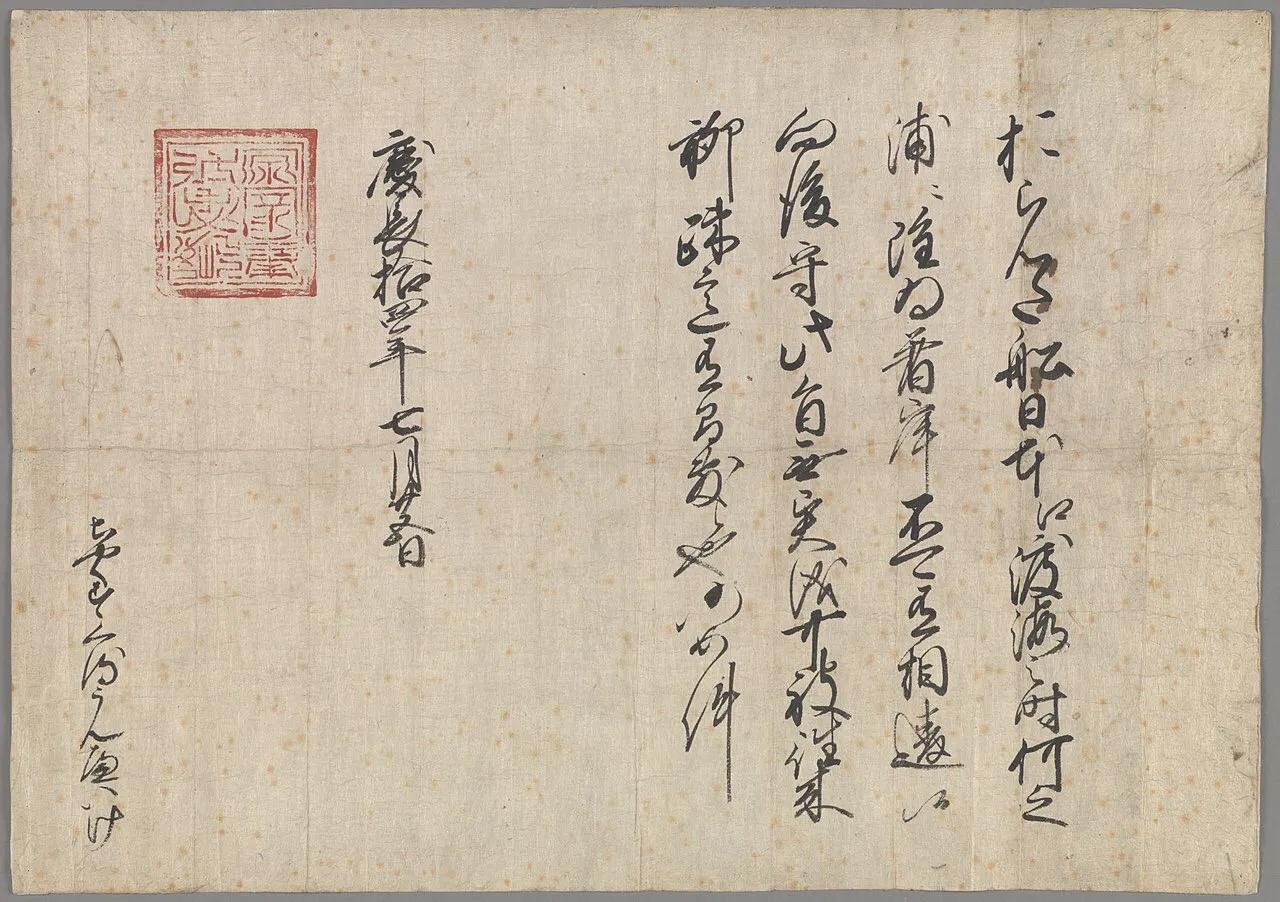 おらんた船日本江渡海之時何之
浦ニ雖為着岸不可有相違候
向後守此旨無異儀可被往来
聊疎意有間敷候也仍如件
慶長拾四年七月廿五日
源家康
弭忠恕
ちやくすくるうんへいけ